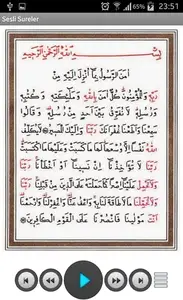 23:51
Sesli Sureler
بِسْمِ اللهِ الرَّحْمٰنِ الرَّحِيمِ
اٰمَنَ الرَّسُولُ بِمَا اُنْزِلَ اِلَيْهِ مِنْ
رَبِّهِ وَالْمُؤْمِنُونَ كُلٌّ اٰمَنَ بِاللهِ وَمَلٰئِكَتِهِ وَكُتُبِهِ
وَرُسُلِهِ لَا نُفَرِّقُ بَيْنَ اَحَدٍ مِنْ رُسُلِهِ وَقَالُوا
سَمِعْنَا وَاَطَعْنَا غُفْرَانَكَ رَبَّنَا وَاِلَيْكَ الْمَصِيرُ لَا يُكَلِّفُ اللهُ
نَفْسًا اِلَّا وُسْعَهَا لَهَا مَا كَسَبَتْ وَعَلَيْهَا مَا اكْتَسَبَتْ
رَبَّنَا لَا تُؤَاخِذْنَا اِنْ نَسِينَا اَوْ اَخْطَأْنَا رَبَّنَا
وَلَا تَحْمِلْ عَلَيْنَا اِصْرًا كَمَا حَمَلْتَهُ عَلَى الَّذِينَ مِنْ قَبْلِنَا رَبَّنَا
وَلَا تُحَمِّلْنَا مَا لَا طَاقَةَ لَنَا بِهِ وَاعْفُ عَنَّا وَاغْفِرْ لَنَا وَارْحَمْنَا
اَنْتَ مَوْلٰينَا فَانْصُرْنَا عَلَى الْقَوْمِ الْكَافِرِينَ